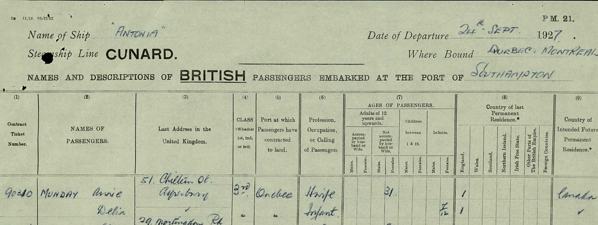 P M. 21.
Name of Ship "ANTONIA" Date of Departure 24th SEPT. 1927
Steamship Line CUNARD. Where Bound QUEBEC. MONTREAL
NAMES AND DESCRIPTIONS OF BRITISH PASSENGERS EMBARKED AT THE PORT OF SOUTHAMPTON
(1) (2) (3) (4) (5) (6) (7) (8) (9)
Contract Ticket Number.
NAMES OF PASSENGERS.
Last Address in the United Kingdom.
CLASS
Port at which Passengers have contracted to land.
Profession, Occupation, or Calling of Passengers.
AGES OF PASSENGERS.
Adults of 12 years and upwards.
Accompanied by husband or Wife.
Not accompanied by husband or Wife.
Children between 1 & 12.
Infants.
Males. Females. Males. Females. Males. Females. Males. Females.
Country of last Permanent Residence.*
England. Wales. Scotland. Northern Ireland. Irish Free State. Other Parts of the British Empire. Foreign Countries.
Country of Intended Future Permanent Residence.*
51. Chilton St.
MUNDAY Annie 3rd Quebec H'wife 31 1 Canada
Delia Infant. 1
29